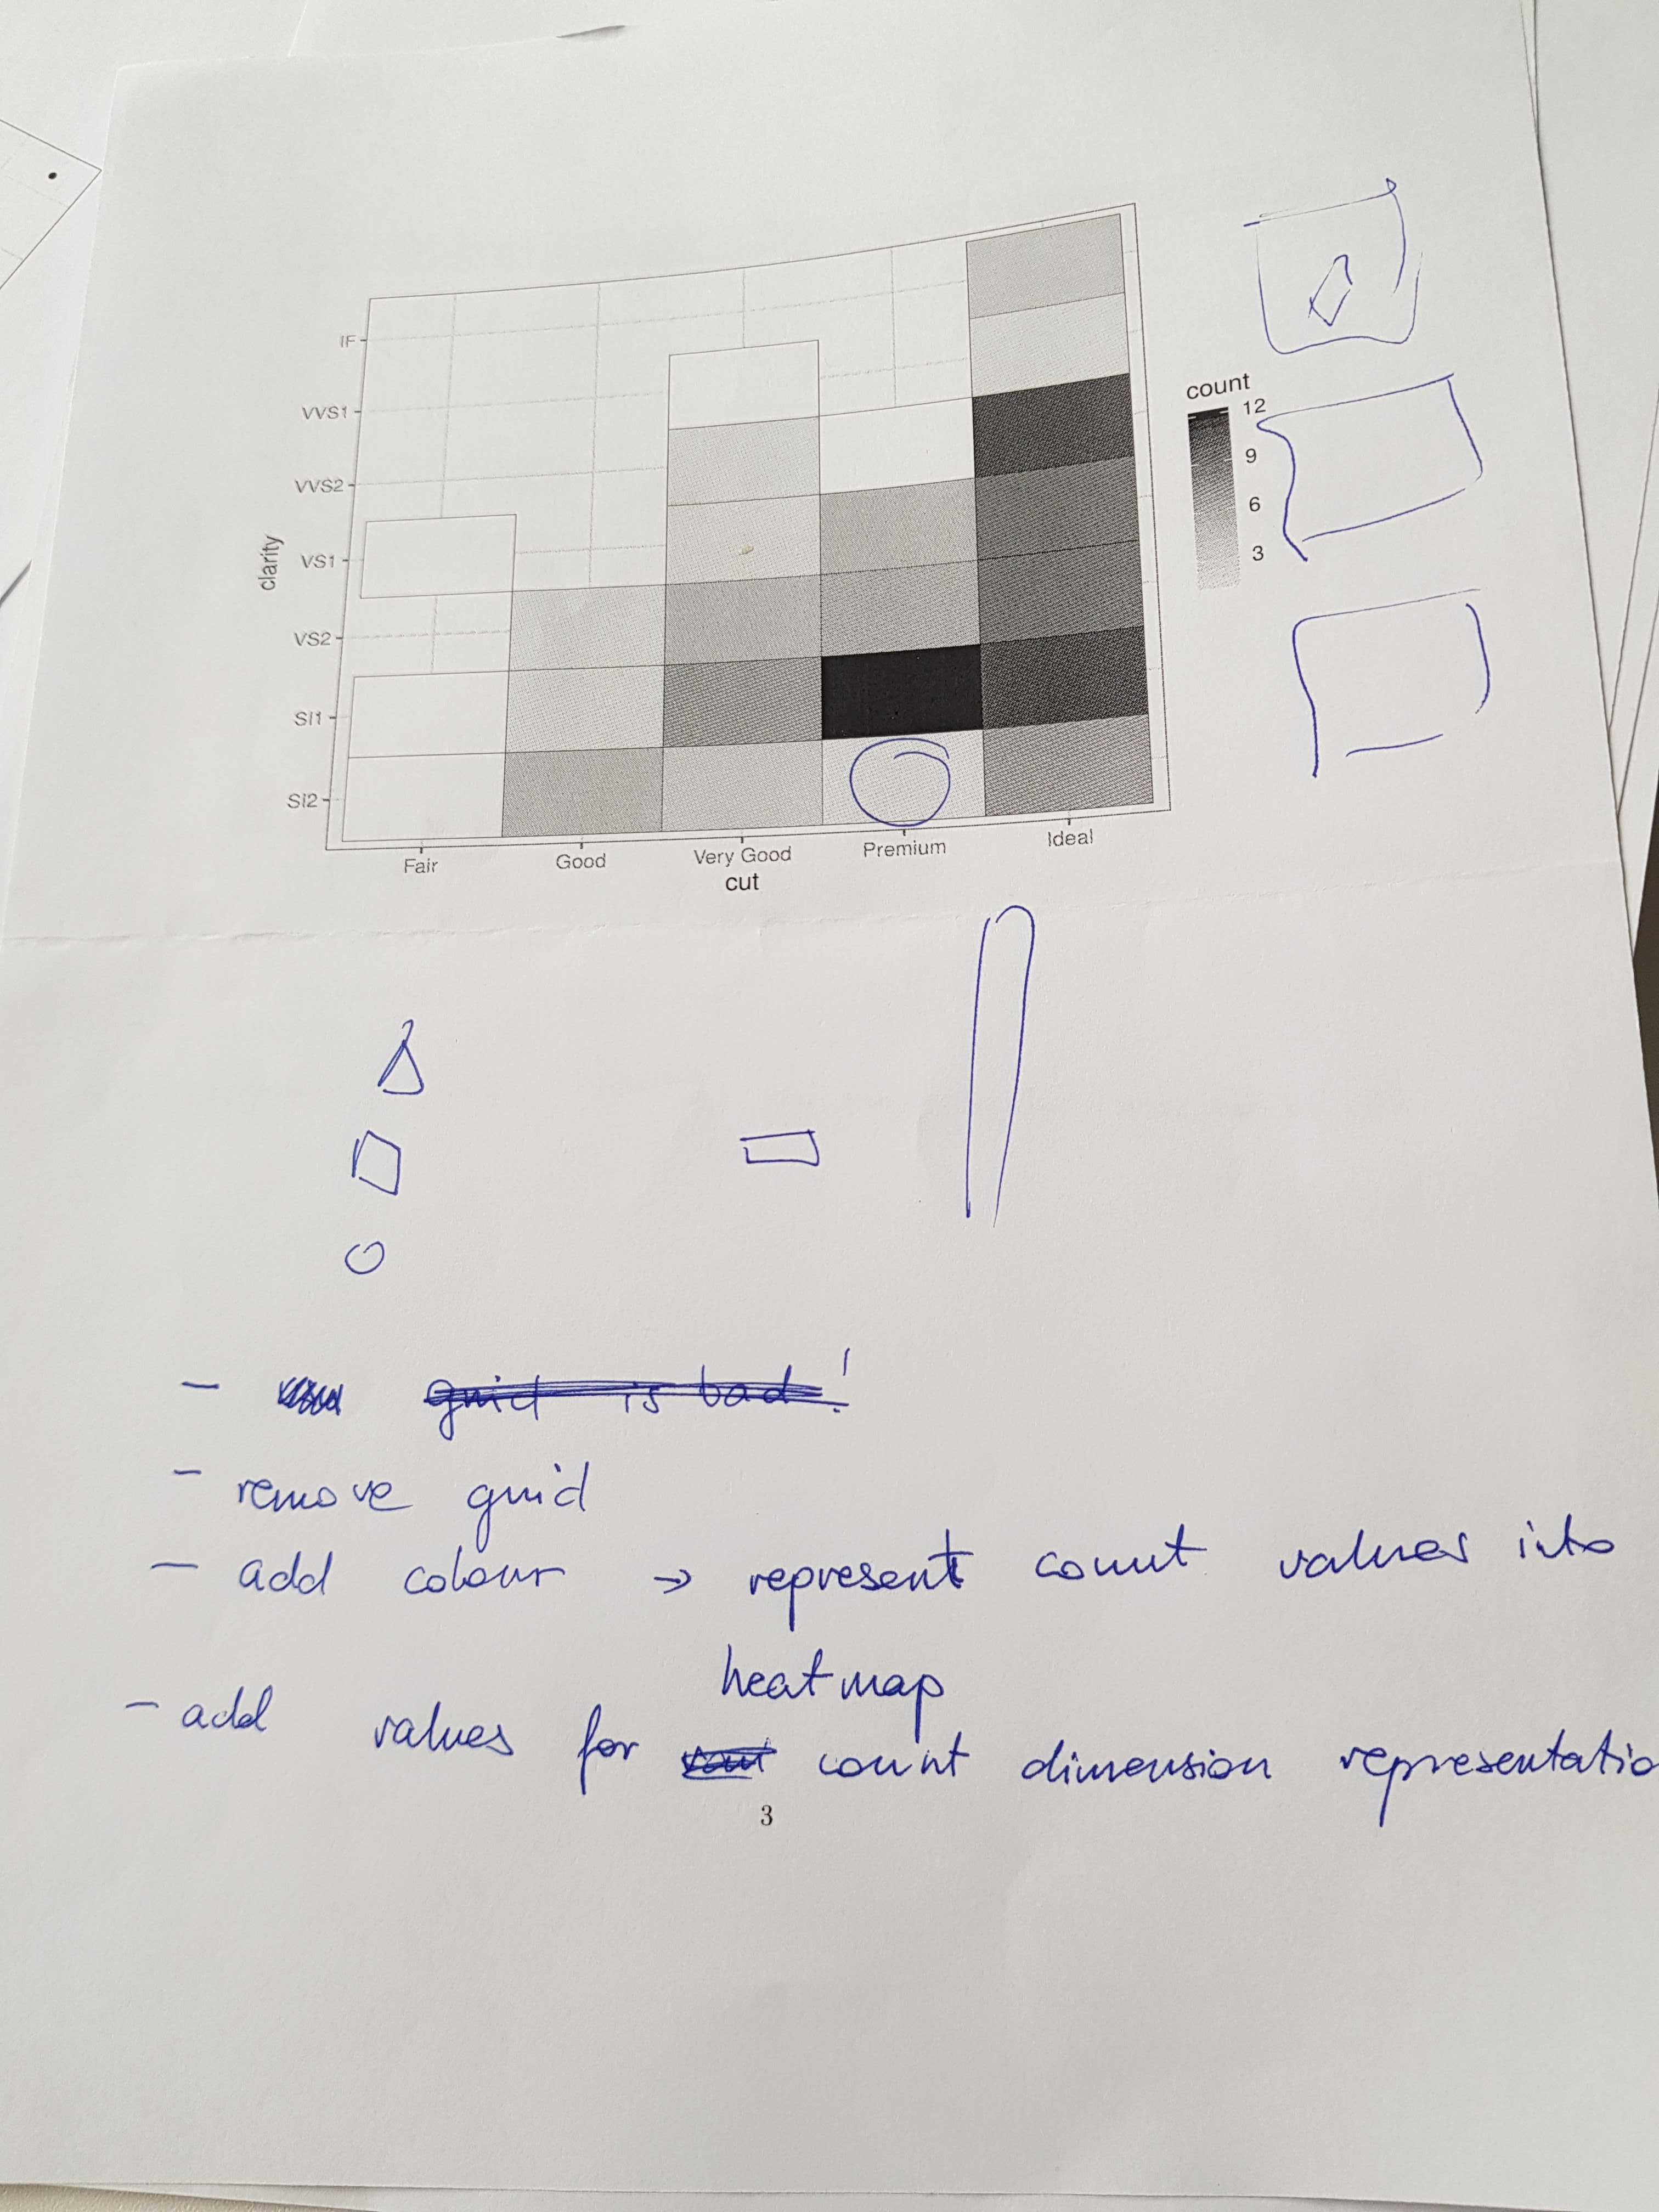 IF
VVS1
VVS2
VS1
VS2
SI1
SI2
clarity
Fair
Good
Very Good
Premium
Ideal
cut
count
12
9
6
3
- grid is bad!
- remove grid
- add colour → represent count values into
heatmap
- add values for count dimension representatio
3